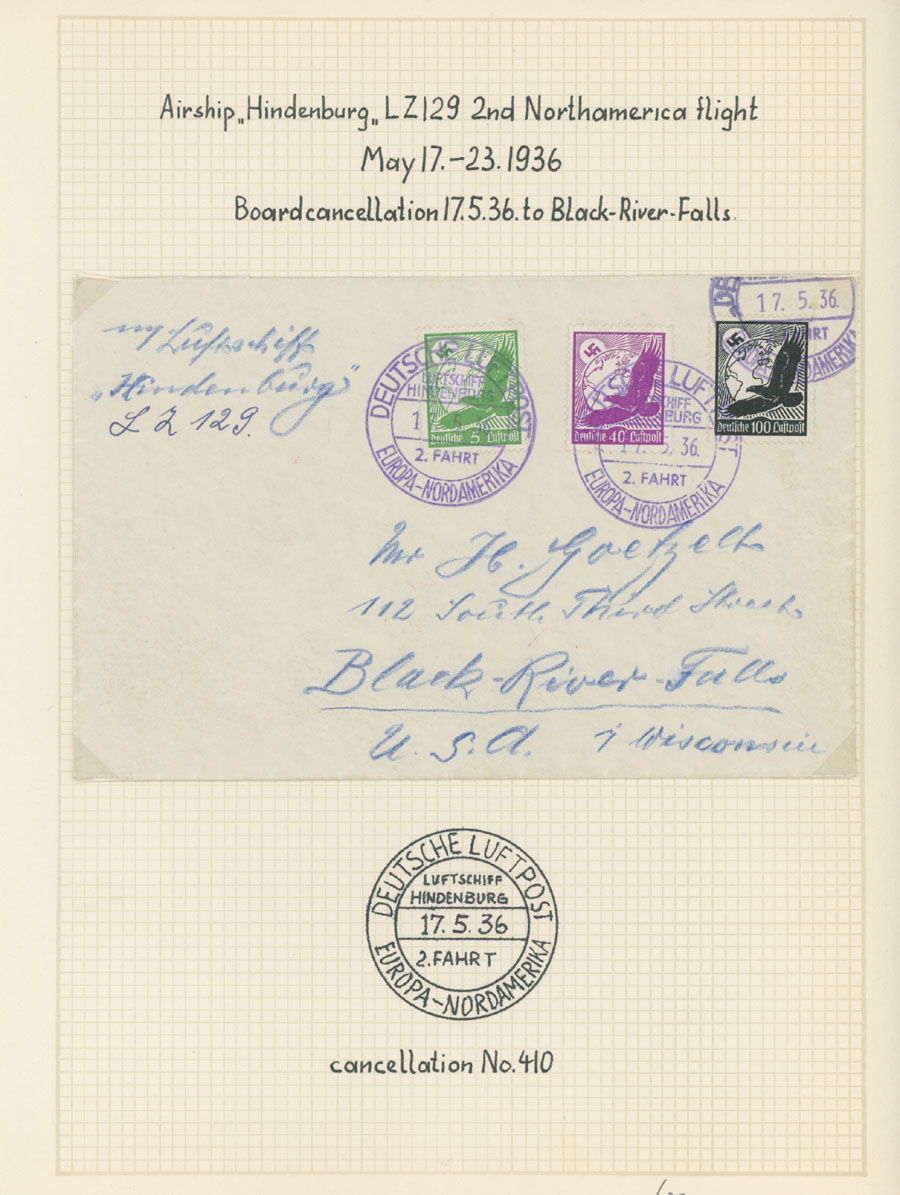 Airship „Hindenburg„ LZ129 2nd Northamerica flight
May 17.–23. 1936
Boardcancellation 17.5.36. to Black-River-Falls.
m/ Luftschiff
„Hindenburg”
LZ 129.
DEUTSCHE LUFTPOST
LUFTSCHIFF
HINDENBURG
2. FAHRT
EUROPA–NORDAMERIKA
Deutsche 5 Luftpost
Deutsche 40 Luftpost
LUFT
17. 5. 36.
2. FAHRT
EUROPA–NORDAMERIKA
Deutsche 100 Luftpost
17. 5. 36.
Mr H. Goetzelt
112 South Third Street
Black-River-Falls
U.S.A. i/ Wisconsin
DEUTSCHE LUFTPOST
LUFTSCHIFF
HINDENBURG
17. 5. 36
2. FAHRT
EUROPA–NORDAMERIKA
cancellation No. 410